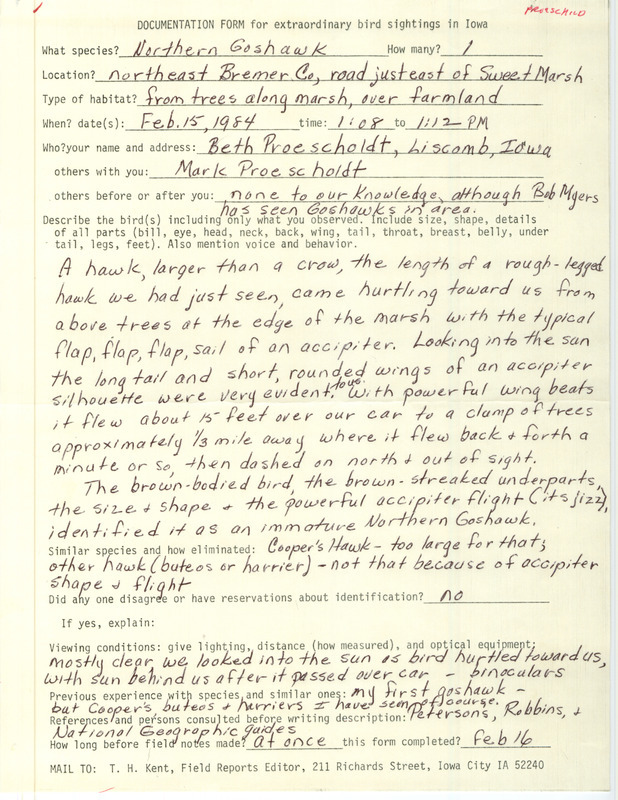 PROESCHILD
DOCUMENTATION FORM for extraordinary bird sightings in Iowa
What species? Northern Goshawk How many? 1
Location? northeast Bremer Co, road just east of Sweet Marsh
Type of habitat? from trees along marsh, over farmland
When? date(s): Feb. 15, 1984 time: 1:08 to 1:12 PM
Who?your name and address: Beth Proescholdt, Liscomb, Iowa
others with you: Mark Proescholdt
others before or after you: none to our knowledge, although Bob Myers
has seen Goshawks in area.
Describe the bird(s) including only what you observed. Include size, shape, details
of all parts (bill, eye, head, neck, back, wing, tail, throat, breast, belly, under
tail, legs, feet). Also mention voice and behavior.
A hawk, larger than a crow, the length of a rough-legged
hawk we had just seen, came hurtling toward us from
above trees at the edge of the marsh with the typical
flap, flap, flap, sail of an accipiter. Looking into the sun
the long tail and short, rounded wings of an accipiter
silhouette were very evident to us. With powerful wing beats
it flew about 15 feet over our car to a clump of trees
approximately 1/3 mile away where it flew back & forth a
minute or so, then dashed on north & out of sight.
The brown-bodied bird, the brown-streaked underparts,
the size & shape & the powerful accipiter flight (its jizz),
identified it as an immature Northern Goshawk.
Similar species and how eliminated: Cooper's Hawk - too large for that;
other hawk (buteos or harrier) - not that because of accipiter
shape & flight
Did any one disagree or have reservations about identification? no
If yes, explain:
Viewing conditions: give lighting, distance (how measured), and optical equipment:
mostly clear, we looked into the sun as bird hurtled toward us,
with sun behind us after it passed over car - binoculars
Previous experience with species and similar ones: my first goshawk -
but Cooper's buteos & harriers I have seen of course.
References and persons consulted before writing description: Petersons, Robbins, &
National Geographic guides
How long before field notes made? at once this form completed? Feb 16
MAIL TO: T. H. Kent, Field Reports Editor, 211 Richards Street, Iowa City IA 52240